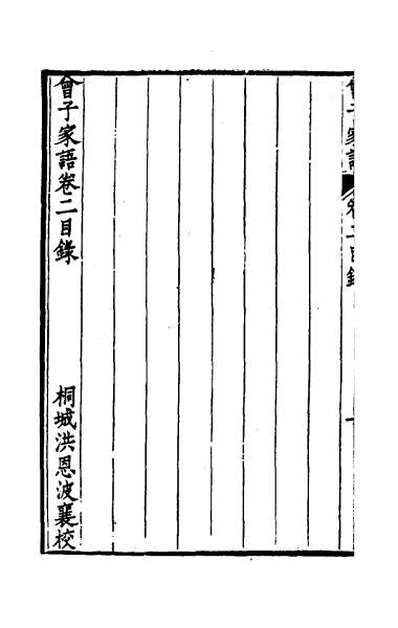 曾子家語 卷二目錄 一
曾子家語卷二目錄 桐城洪恩波襄校